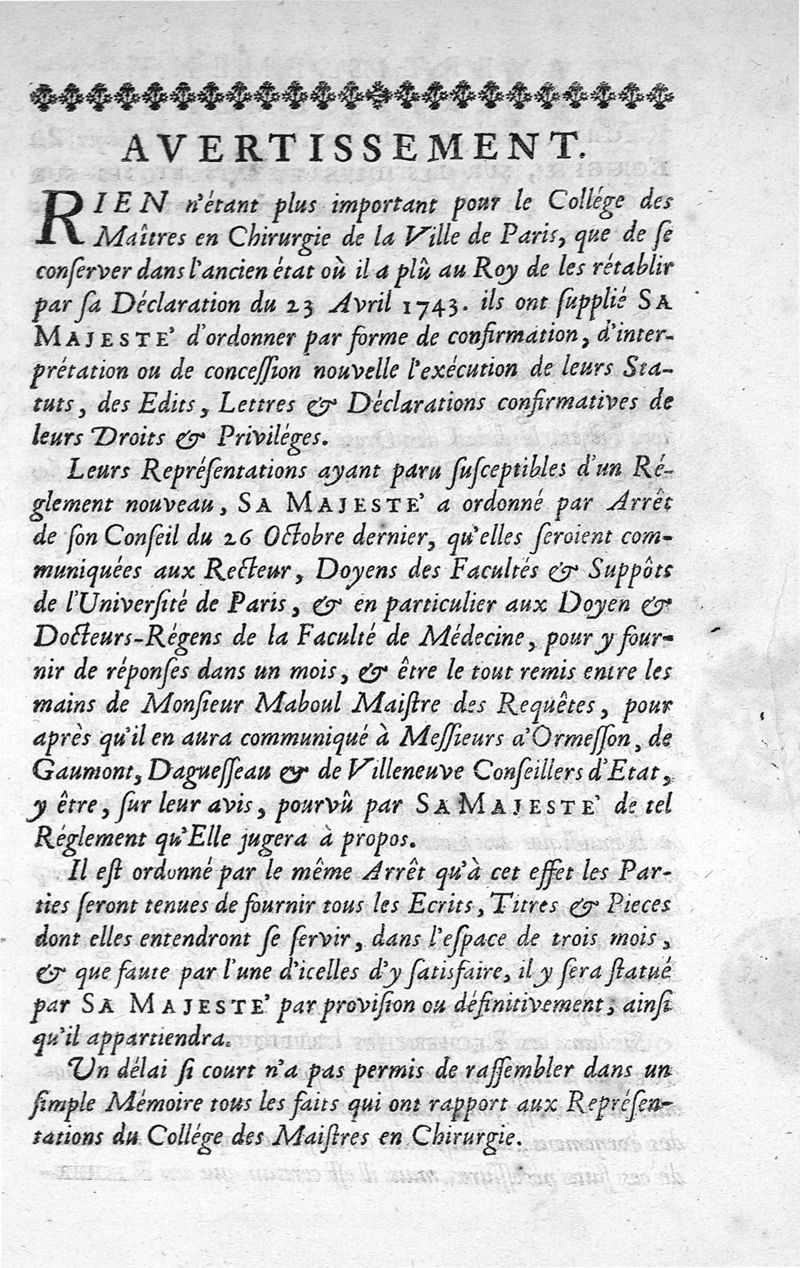 AVERTISSEMENT.
RIEN n'étant plus important pour le Collége des
Maîtres en Chirurgie de la Ville de Paris, que de ſe
conſerver dans l'ancien état où il a plû au Roy de les rétablir
par ſa Déclaration du 23 Avril 1743. ils ont ſupplié SA
MAJESTE' d'ordonner par forme de confirmation, d'inter-
prétation ou de conceſſion nouvelle l'exécution de leurs Sta-
tuts, des Edits, Lettres & Déclarations confirmatives de
leurs Droits & Priviléges.
Leurs Repréſentations ayant paru ſuſceptibles d'un Ré-
glement nouveau, SA MAJESTE' a ordonné par Arrêt
de ſon Conſeil du 26 Octobre dernier, qu'elles ſeroient com-
muniquées aux Recteur, Doyens des Facultés & Suppôts
de l'Univerſité de Paris, & en particulier aux Doyen &
Docteurs-Régens de la Faculté de Médecine, pour y four-
nir de réponſes dans un mois, & être le tout remis entre les
mains de Monſieur Maboul Maiſtre des Requêtes, pour
après qu'il en aura communiqué à Meſſieurs d'Ormeſſon, de
Gaumont, Dagueſſeau & de Villeneuve Conſeillers d'Etat,
y être, ſur leur avis, pourvû par SA MAJESTE' de tel
Réglement qu'Elle jugera à propos.
Il eſt ordonné par le même Arrêt qu'à cet effet les Par-
ties ſeront tenues de fournir tous les Ecrits, Titres & Pieces
dont elles entendront ſe ſervir, dans l'eſpace de trois mois,
& que faute par l'une d'icelles d'y ſatisfaire, il y ſera ſtatué
par SA MAJESTE' par proviſion ou définitivement, ainſi
qu'il appartiendra.
Un délai ſi court n'a pas permis de raſſembler dans un
ſimple Mémoire tous les faits qui ont rapport aux Repréſen-
tations du Collége des Maiſtres en Chirurgie.